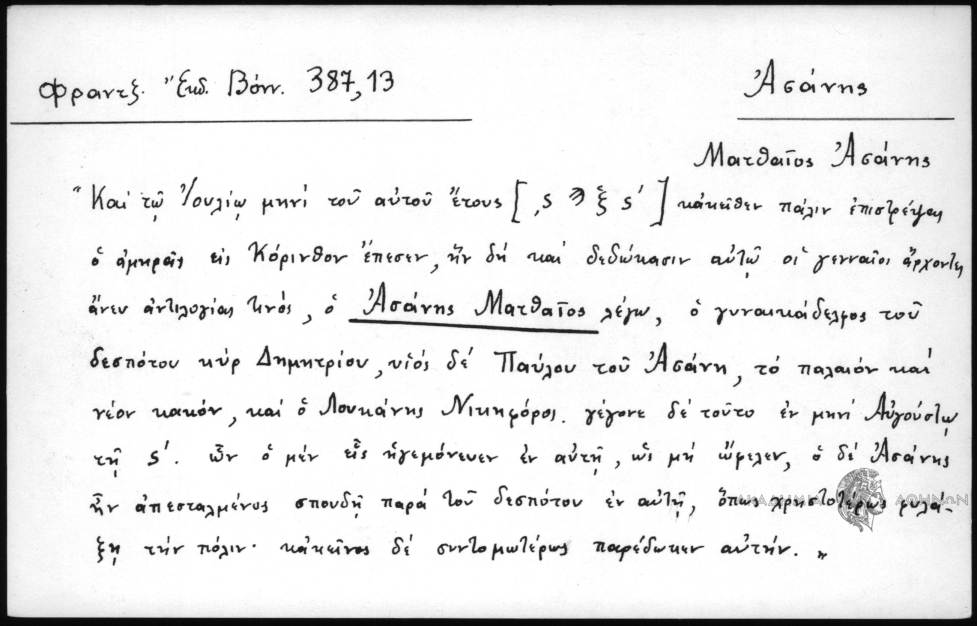 Φραντζ. Ἔκδ. Βόνν. 387,13
Ἀσάνης
Ματθαῖος Ἀσάνης
"Καί τῷ Ἰουλίῳ μηνί τοῦ αὐτοῦ ἔτους [͵ϛϡξϛ'] κἀκεῖθεν πάλιν ἐπιστρέψας
ὁ ἀμηρᾶς εἰς Κόρινθον ἔπεσεν, ἥν δή καί δεδώκασιν αὐτῷ οἱ γενναῖοι ἄρχοντες
ἄνευ ἀντιλογίας τινός, ὁ Ἀσάνης Ματθαῖος λέγω, ὁ γυναικάδελφος τοῦ
δεσπότου κύρ Δημητρίου, υἱός δέ Παύλου τοῦ Ἀσάνη, τό παλαιόν καί
νέον κακόν, καί ὁ Λουκάνης Νικηφόρος. γέγονε δέ τοῦτο ἐν μηνί Αὐγούστῳ
τῇ ϛ'. ὧν ὁ μέν εἷς ἡγεμόνευεν ἐν αὐτῇ, ὡς μή ὤφελεν, ὁ δέ Ἀσάνης
ἦν ἀπεσταλμένος σπουδῇ παρά τοῦ δεσπότου ἐν αὐτῇ, ὅπως χρηστοτέρως φυλά-
ξῃ τήν πόλιν· κἀκεῖνος δέ συντομωτέρως παρέδωκεν αὐτήν."
ΑΚΑΔΗΜΙΑ ΑΘΗΝΩΝ